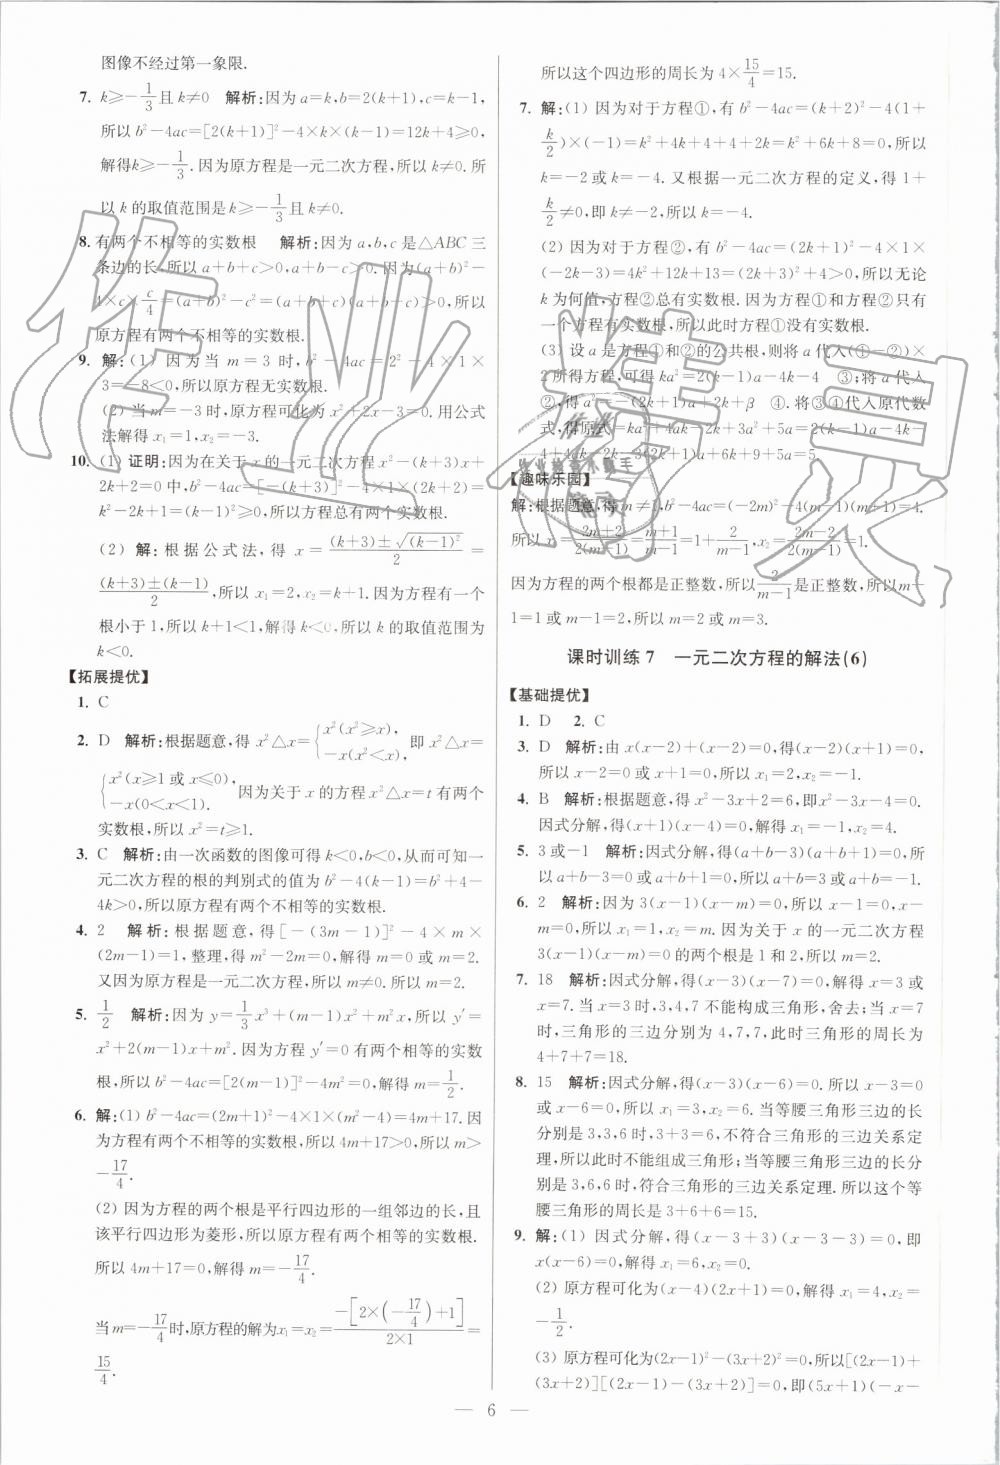 图像不经过第一象限.
7. k≥-1/3且k≠0 解析:因为a=k,b=2(k+1),c=k-1,
所以b²-4ac=[2(k+1)]²-4×k×(k-1)=12k+4≥0,
解得k≥-1/3. 因为原方程是一元二次方程,所以k≠0. 所
以k的取值范围是k≥-1/3且k≠0.
8. 有两个不相等的实数根 解析:因为a,b,c是△ABC三
条边的长,所以a+b+c>0,a+b-c>0. 因为(a+b)²-
4×c×c/4=(a+b)²-c²=(a+b+c)(a+b-c)>0,所以
原方程有两个不相等的实数根.
9. 解:(1) 因为当m=3时,b²-4ac=2²-4×1×
3=-8<0,所以原方程无实数根.
(2) 当m=-3时,原方程可化为x²+2x-3=0. 用公式
法解得x₁=1,x₂=-3.
10. (1) 证明:因为在关于x的一元二次方程x²-(k+3)x+
2k+2=0中,b²-4ac=[-(k+3)]²-4×1×(2k+2)=
k²-2k+1=(k-1)²≥0,所以方程总有两个实数根.
(2) 解:根据公式法,得x=((k+3)±√(k-1)²)/2=
((k+3)±(k-1))/2,所以x₁=2,x₂=k+1. 因为方程有一个
根小于1,所以k+1<1,解得k<0,所以k的取值范围为
k<0.
【拓展提优】
1. C
2. D 解析:根据题意,得x²△x={x²(x²≥x), -x(x²<x), 即x²△x=
{x²(x≥1或x≤0), -x(0<x<1). 因为关于x的方程x²△x=t有两个
实数根,所以x²=t≥1.
3. C 解析:由一次函数的图像可得k<0,b<0,从而可知一
元二次方程的根的判别式的值为b²-4(k-1)=b²+4-
4k>0,所以原方程有两个不相等的实数根.
4. 2 解析:根据题意,得[-(3m-1)]²-4×m×
(2m-1)=1,整理,得m²-2m=0,解得m=0或m=2.
又因为原方程是一元二次方程,所以m≠0. 所以m=2.
5. 1/2 解析:因为y=1/3x³+(m-1)x²+m²x,所以y′=
x²+2(m-1)x+m². 因为方程y′=0有两个相等的实数
根,所以b²-4ac=[2(m-1)]²-4m²=0,解得m=1/2.
6. 解:(1) b²-4ac=(2m+1)²-4×1×(m²-4)=4m+17. 因
为方程有两个不相等的实数根,所以4m+17>0,所以m>
-17/4.
(2) 因为方程的两个根是平行四边形的一组邻边的长,且
该平行四边形为菱形,所以原方程有两个相等的实数根.
所以4m+17=0,解得m=-17/4.
当m=-17/4时,原方程的解为x₁=x₂=-[2×(-17/4)+1]/(2×1)=
15/4.
所以这个四边形的周长为4×15/4=15.
7. 解:(1) 因为对于方程①,有b²-4ac=(k+2)²-4(1+
k/2)×(-1)=k²+4k+4+4+2k=k²+6k+8=0,所以
k=-2或k=-4. 又根据一元二次方程的定义,得1+
k/2≠0,即k≠-2,所以k=-4.
(2) 因为对于方程②,有b²-4ac=(2k+1)²-4×1×
(-2k-3)=4k²+12k+13=(2k+3)²+4>0,所以无论
k为何值,方程②总有实数根. 因为方程①和方程②只有
一个方程有实数根,所以此时方程①没有实数根.
(3) 设a是方程①和②的公共根,则将a代入(①×
2)所得方程,可得ka²=2(k-1)a-4k-4 ③;将a代入
②,得a²=-(2k+1)a+2k+β ④. 将③④代入原代数
式,得原式=ka²+4ak-2k+3a²+5a=2(k-1)a-4k-
4+4ak-2k-3(2k+1)a+6k+9+5a=5.
【趣味乐园】
解:根据题意,得m≠1,b²-4ac=(-2m)²-4(m-1)(m+1)=4.
所以x₁=(2m+2)/(2(m-1))=(m+1)/(m-1)=1+2/(m-1),x₂=(2m-2)/(2(m-1))=1.
因为方程的两个根都是正整数,所以2/(m-1)是正整数,所以m-
1=1或m-1=2,所以m=2或m=3.
课时训练7 一元二次方程的解法(6)
【基础提优】
1. D 2. C
3. D 解析:由x(x-2)+(x-2)=0,得(x-2)(x+1)=0,
所以x-2=0或x+1=0,所以x₁=2,x₂=-1.
4. B 解析:根据题意,得x²-3x+2=6,即x²-3x-4=0.
因式分解,得(x+1)(x-4)=0,解得x₁=-1,x₂=4.
5. 3或-1 解析:因式分解,得(a+b-3)(a+b+1)=0,所
以a+b-3=0或a+b+1=0,所以a+b=3或a+b=-1.
6. 2 解析:因为3(x-1)(x-m)=0,所以x-1=0,x-
m=0,所以x₁=1,x₂=m. 因为关于x的一元二次方程
3(x-1)(x-m)=0的两个根是1和2,所以m=2.
7. 18 解析:因式分解,得(x-3)(x-7)=0,解得x=3或
x=7. 当x=3时,3,4,7不能构成三角形,舍去;当x=7
时,三角形的三边分别为4,7,7,此时三角形的周长为
4+7+7=18.
8. 15 解析:因式分解,得(x-3)(x-6)=0. 所以x-3=0
或x-6=0,所以x₁=3,x₂=6. 当等腰三角形三边的长
分别是3,3,6时,3+3=6,不符合三角形的三边关系定
理,所以此时不能组成三角形;当等腰三角形三边的长是
3,6,6时,符合三角形的三边关系定理. 所以这个等
腰三角形的周长是3+6+6=15.
9. 解:(1) 因式分解,得(x-3+3)(x-3-3)=0,即
x(x-6)=0,解得x₁=6,x₂=0.
(2) 原方程可化为(x-4)(2x+1)=0,解得x₁=4,x₂=
-1/2.
(3) 原方程可化为(2x-1)²-(3x+2)²=0,所以[(2x-1)+
(3x+2)][(2x-1)-(3x+2)]=0,即(5x+1)(-x-
— 6 —